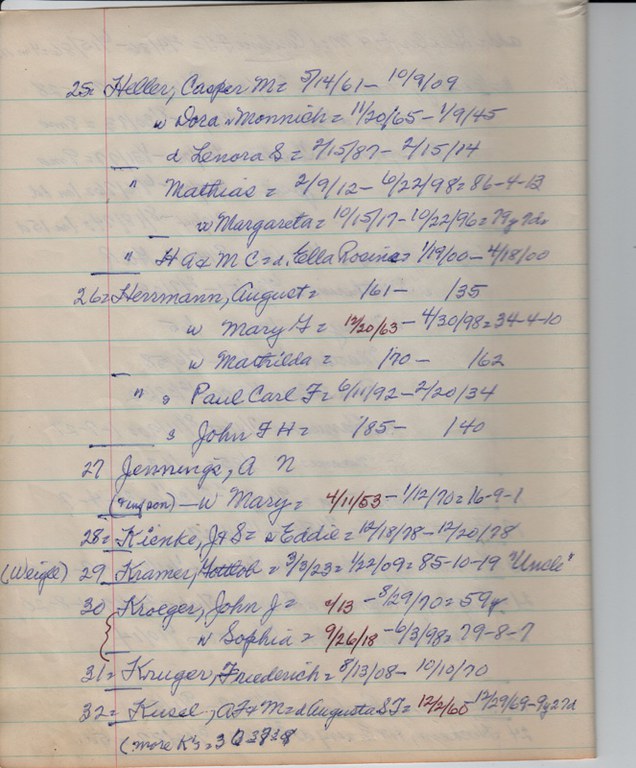 25= Heller, Casper M= 5/14/61 - 10/9/09
w Dora "Monnich = 11/20/65 - 1/9/45
d Lenora S = 2/15/87 - 2/15/14
" Mathias = 2/9/12 - 6/22/98 = 86-4-13
w Margareta = 10/15/17 - 10/22/96 = 79y 7ds
" H A & M C = d. Ella Rosina = 1/19/00 - 4/18/00
26= Herrmann, August = /61 - /35
w Mary G = 12/20/63 - 4/30/98 = 34-4-10
w Mathilda = /70 - /62
" s Paul Carl F = 6/11/92 - 2/20/34
s John F H = /85 - /40
27 Jennings, A N
— w Mary = 4/11/53 - 1/12/70 = 16-9-1
28= Kienke, J & S = s Eddie = 12/18/78 - 12/20/78
(Weigle) 29 Kramer, Gottlob = 3/3/23 = 1/22/09 = 85-10-19 "Uncle"
30 Kroeger, John J = /13 - 8/29/70 = 59y
w Sophia = 9/26/18 - 6/3/98 = 79-8-7
31= Kruger, Friederich = 8/13/08 - 10/10/70
32= Kusel, A F & M = d Augusta S F = 12/2/60 12/29/69 - 9y 27d
(more K's =